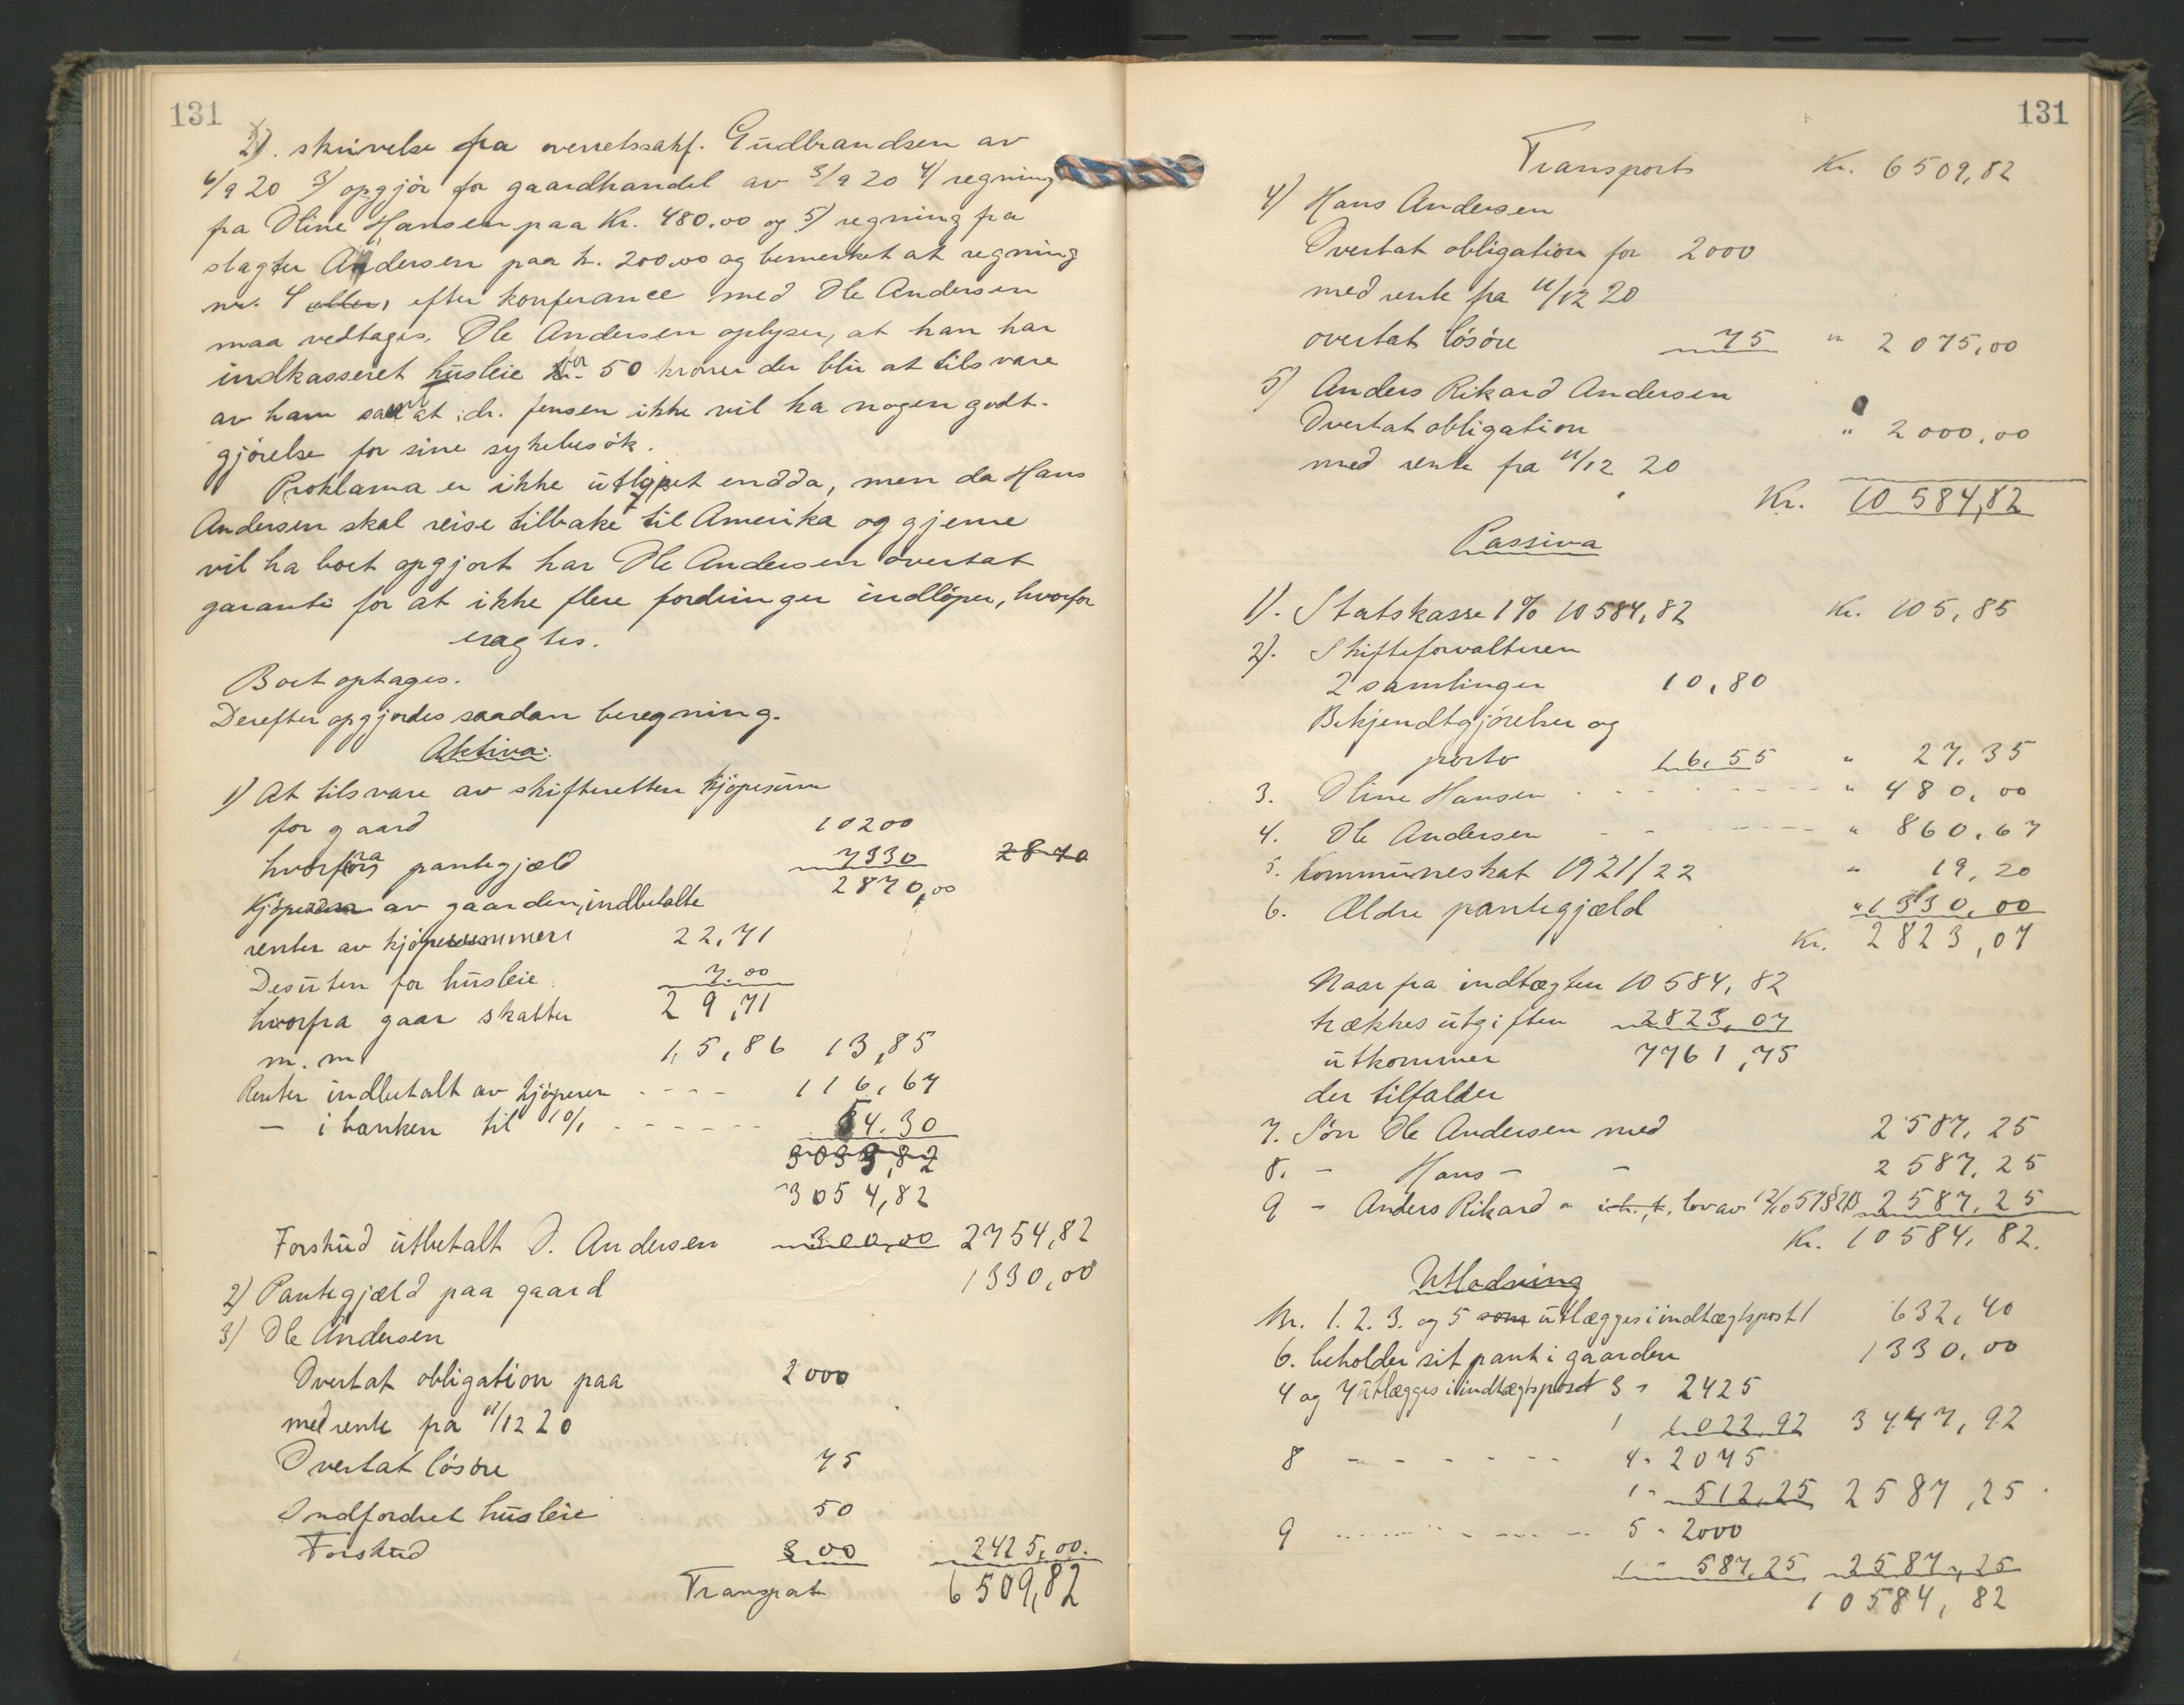 131
2). skrivelse fra overretssakf. Gudbrandsen av
6/9 20 3/ opgjør for gaardhandel av 3/9 20 4/ regning
fra Oline Hansen paa Kr. 480.00 og 5) regning fra
slagter Andersen paa kr. 200,00 og bemerket at regning
nr. 4 eller, efter konferance med Ole Andersen
maa vedtages. Ole Andersen oplyser, at han har
indkasseret husleie for 50 kroner der blir at tilsvare
av ham samt at dr. Jensen ikke vil ha nogen godt-
gjørelse for sine sykebesøk.
Proklama er ikke utløpet endda, men da Hans
Andersen skal reise tilbake til Amerika og gjerne
vil ha boet opgjort har Ole Andersen overtat
garanti for at ikke flere fordringer indløper, hvorfor
eragtes.
Boet optages.
Derefter opgjordes saadan beregning.
Aktiva:
1) At tilsvare av skifteretten kjøpesum
for gaard 10200
hvorfra pantegjæld 7330 2870
2870,00
Kjøperen av gaarden, indbetalte
renter av kjøpesummen 22,71
Desuten for husleie 7.00
hvorfra gaar skatter 29,71
m. m 15,86 13,85
Renter indbetalt av kjøperen - - - - 116,67
— i banken til 10/1 - - - - - - 54.30
3033,82
3054,82
Forskud utbetalt O. Andersen 300,00 2754,82
2) Pantegjæld paa gaard 1330,00
3) Ole Andersen
Overtat obligation paa 2000
med rente fra 11/12 20
Overtat løsøre 75
Indfordret husleie 50
Forskud 300 2425,00.
Transport 6509,82
131
Transport Kr. 6509,82
4) Hans Andersen
Overtat obligation for 2000
med rente fra 11/12 20
overtat løsøre 75 " 2075,00
5) Anders Rikard Andersen
Overtat obligation " 2000,00
med rente fra 11/12 20
Kr. 10584,82
Passiva
1). Statskasse 1% 10584,82 Kr. 105,85
2). Skifteforvalteren
2 samlinger 10,80
Bekjendtgjørelser og
porto 16,55 " 27,35
3. Oline Hansen - - - - - - - - - " 480,00
4. Ole Andersen - - - - - - - " 860,67
5. Kommuneskat 1921/22 " 19,20
6. Ældre pantegjæld " 1330,00
Kr. 2823,07
Naar fra indtægten 10584,82
trækkes utgiften 2823,07
utkommer 7761,75
der tilfalder
7. Søn Ole Andersen med 2587,25
8. - Hans - - 2587,25
9 - Anders Rikard - lov av 12/10 57 § 20 2587,25
Kr. 10584,82.
Utlodning
Nr. 1. 2. 3. og 5 som utlægges i indtægtspost 1 632,40
6. beholder sit pant i gaarden 1330,00
4 og 7 utlægges i indtægtspost 3 - 2425
1 1022,92 3447,92
8 - - - - - - 4 - 2075
1 - 512,25 2587,25
9 - - - - - - 5 - 2000
1 - 587,25 2587,25
10584,82